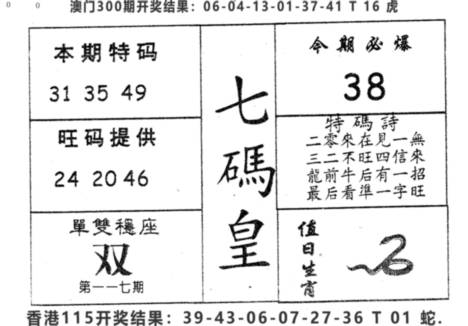 澳门300期开奖结果：06-04-13-01-37-41 T 16 虎
本期特码
31 35 49
旺码提供
24 20 46
單雙穩座
双
第一一七期
七碼皇
今期必爆
38
特碼詩
二零來在見一無
三二不旺四信來
龍前牛后有一招
最后看準一字旺
值日生肖
香港115开奖结果：39-43-06-07-27-36 T 01 蛇.